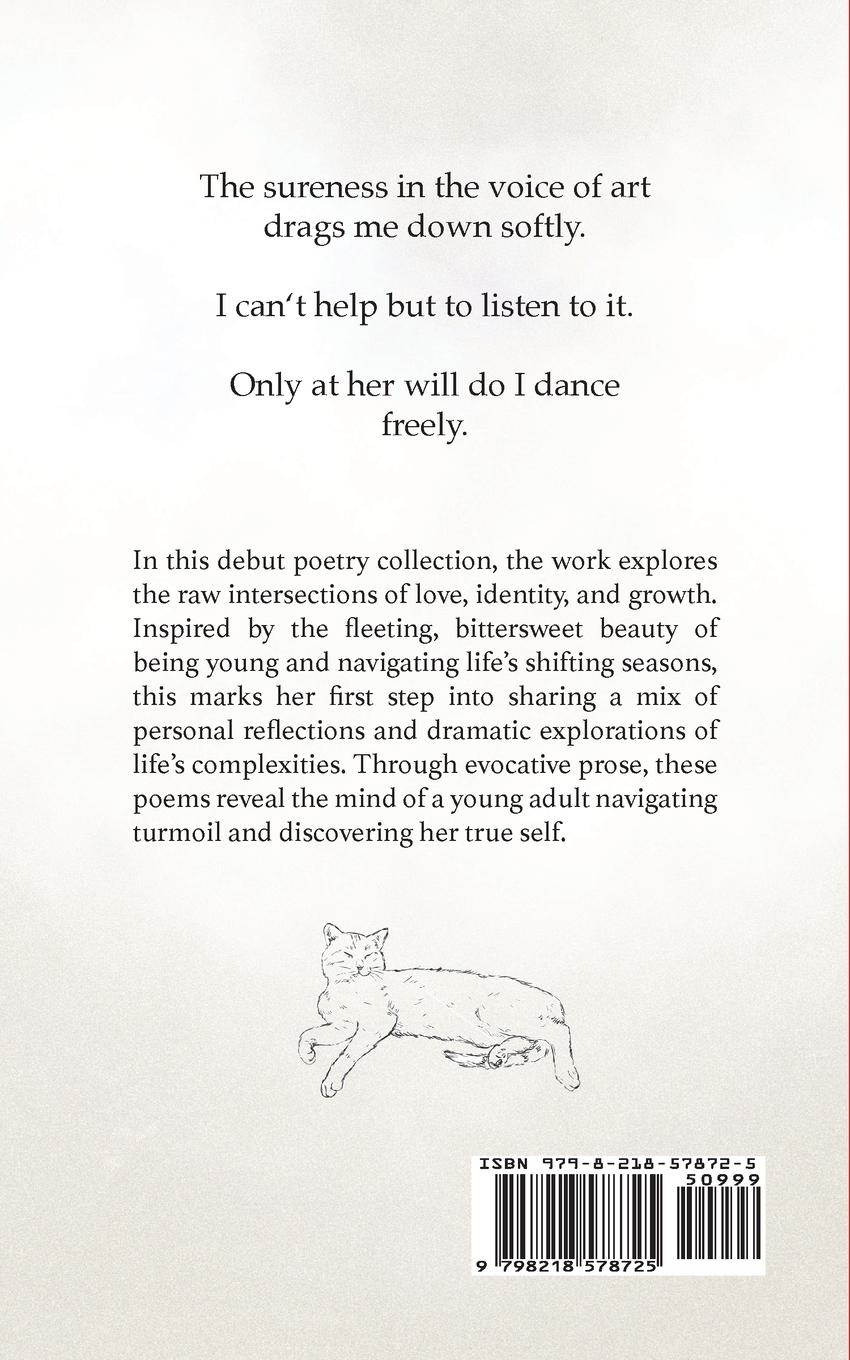 The sureness in the voice of art
drags me down softly.
I can‘t help but to listen to it.
Only at her will do I dance
freely.
In this debut poetry collection, the work explores
the raw intersections of love, identity, and growth.
Inspired by the fleeting, bittersweet beauty of
being young and navigating life’s shifting seasons,
this marks her first step into sharing a mix of
personal reflections and dramatic explorations of
life’s complexities. Through evocative prose, these
poems reveal the mind of a young adult navigating
turmoil and discovering her true self.
ISBN 979-8-218-57872-5
50999
9 798218 578725